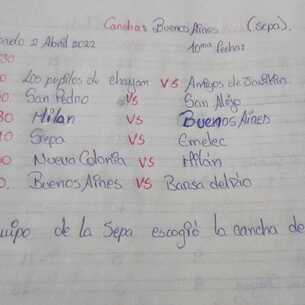 Canchas Buenos Aires (sepa).
2 Abril 2022 10ma fecha
30
Los pupilos de chayan VS Amigos de
San Pedro VS San Alejo
30 Milan VS Buenos Aires
10 Sepa VS Emelec
Nueva Colonia VS Milán
Buenos Aires VS Barsa del rio
de la Sepa escogió la cancha de